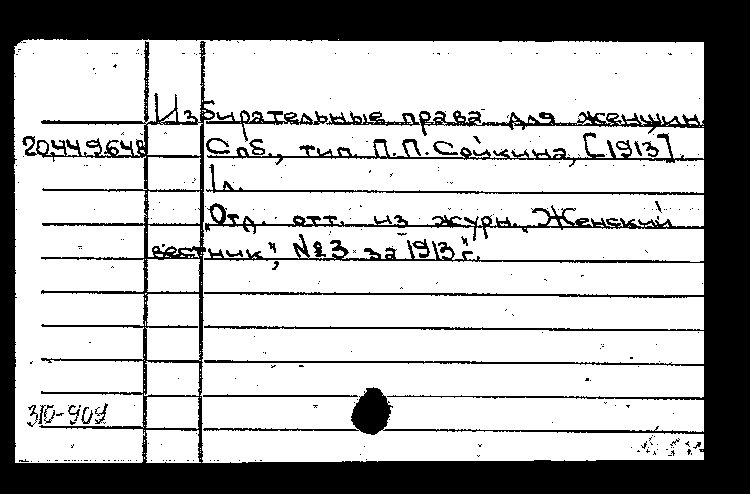 Избирательные права для женщин.
20.44.9.648 Спб., тип. П.П. Сойкина, [1913].
1 л.
"Отд. отт. из журн. "Женский
вестник", №3 за 1913 г."
310-909